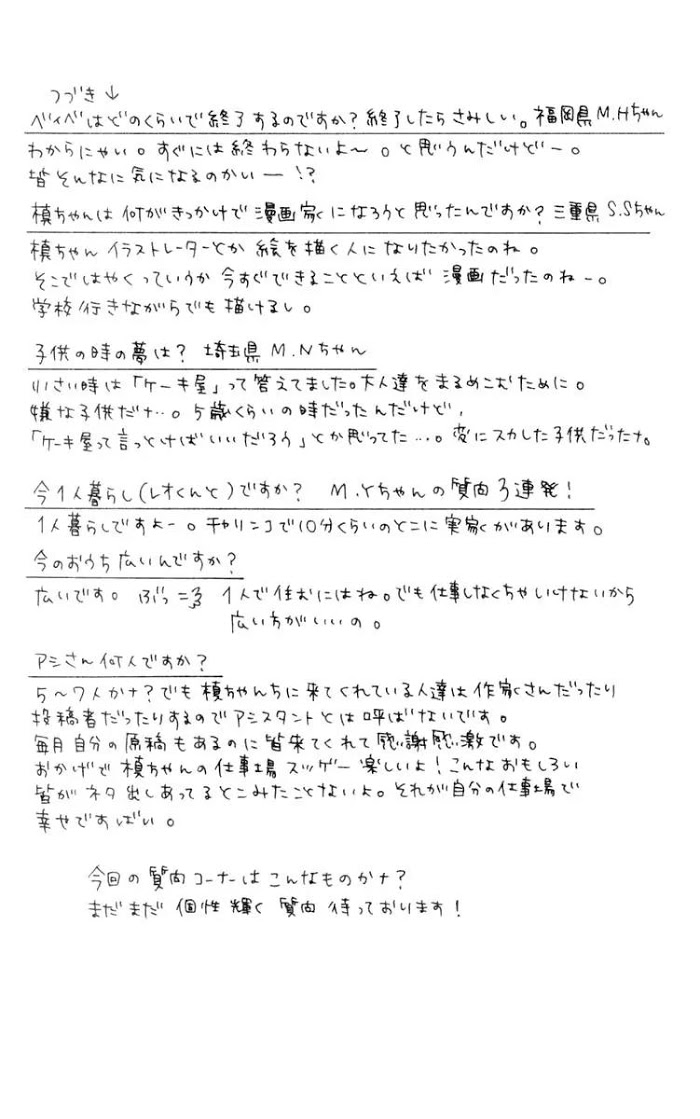 つづき↓
ベイベはどのくらいで終了するのですか?終了したらさみしい。福岡県M.Hちゃん
わからにゃい。すぐには終わらないよ〜。と思うんだけどー。
皆そんなに気になるのかいー!?
槙ちゃんは何がきっかけで漫画家になろうと思ったんですか?三重県S.Sちゃん
槙ちゃんイラストレーターとか絵を描く人になりたかったのね。
そこではやくっていうか今すぐできることといえば漫画だったのねー。
学校行きながらでも描けるし。
子供の時の夢は?埼玉県M.Nちゃん
小さい時は「ケーキ屋」って答えてました。大人達をまるめこむために。
嫌な子供だナ…。5歳くらいの時だったんだけど,
「ケーキ屋って言っとけばいいだろう」とか思ってた…。変にスカした子供だったナ。
今1人暮らし(レオくんと)ですか? M.Yちゃんの質問3連発!
1人暮らしですよー。チャリンコで10分くらいのとこに実家があります。
今のおうち広いんですか?
広いです。 1人で住むにはね。でも仕事しなくちゃいけないから
広い方がいいの。
アシさん何人ですか?
5〜7人かナ?でも槙ちゃんちに来てくれている人達は作家さんだったり
投稿者だったりするのでアシスタントとは呼ばないです。
毎月自分の原稿もあるのに皆来てくれて感謝感激です。
おかげで槙ちゃんの仕事場スッゲー楽しいよ!こんなおもしろい
皆がネタ出しあってるとこみたことないよ。それが自分の仕事場で
幸せですばい。
今回の質問コーナーはこんなものかナ?
まだまだ個性輝く質問待っております!